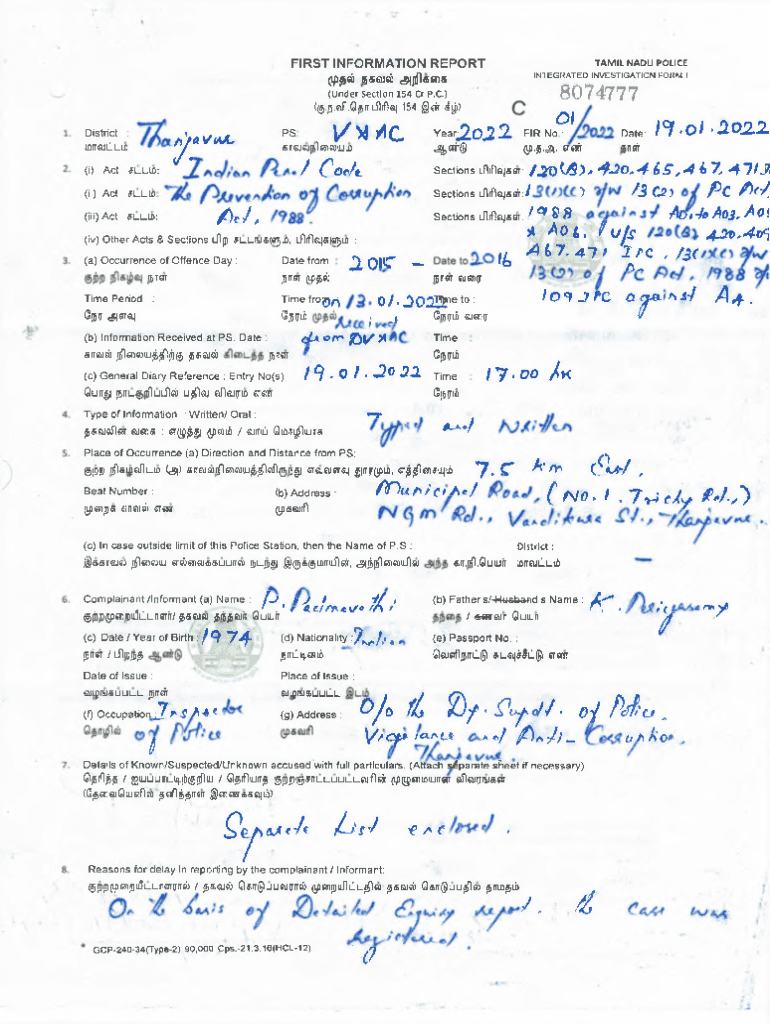 FIRST INFORMATION REPORT
TAMIL NADU POLICE
முதல் தகவல் அறிக்கை
INTEGRATED INVESTIGATION FORM I
(Under Section 154 Cr P.C.)
8074777
(கு.ந.வி.தொ பிரிவு 154 இன் கீழ்)
C
1. District : Thanjavur PS: V & AC Year 2022 FIR No. 01/2022 Date: 19.01.2022
மாவட்டம் காவல்நிலையம் ஆண்டு மு.த.அ. எண் நாள்
2. (i) Act சட்டம்: Indian Penal Code Sections பிரிவுகள்: 120(B), 420, 465, 467, 471
(ii) Act சட்டம்: The Prevention of Corruption Sections பிரிவுகள்: 13(1)(c) r/w 13(2) of PC Act,
(iii) Act சட்டம்: Act, 1988. Sections பிரிவுகள்: 1988 against A01 to A03, A05
(iv) Other Acts & Sections பிற சட்டங்களும், பிரிவுகளும் : & A06. U/s 120(B) 420, 409
467, 471 IPC, 13(1)(c) r/w
3. (a) Occurrence of Offence Day : Date from : 2015 – Date to 2016
குற்ற நிகழ்வு நாள் நாள் முதல் நாள் வரை 13(2) of PC Act, 1988 r/w
Time Period : Time from on 13.01.2022 Time to : 109 IPC against A4.
நேர அளவு நேரம் முதல் received நேரம் வரை
(b) Information Received at PS. Date : from DV&AC Time :
காவல் நிலையத்திற்கு தகவல் கிடைத்த நாள் நேரம்
(c) General Diary Reference : Entry No(s) 19.01.2022 Time : 17.00 hr
பொது நாட்குறிப்பில் பதிவு விவரம் எண் நேரம்
4. Type of Information : Written/ Oral : Typed and Written
தகவலின் வகை : எழுத்து மூலம் / வாய் மொழியாக
5. Place of Occurrence (a) Direction and Distance from PS:
குற்ற நிகழ்விடம் (அ) காவல்நிலையத்திலிருந்து எவ்வளவு தூரமும், எத்திசையும் 7.5 km East.
Beat Number : (b) Address : Municipal Road, (No.1. Trichy Rd.,)
முறைக் காவல் எண் முகவரி NGM Rd., St., Thanjavur.
(c) In case outside limit of this Police Station, then the Name of P.S : District :
இக்காவல் நிலைய எல்லைக்கப்பால் நடந்து இருக்குமாயின், அந்நிலையில் அந்த கா.நி.பெயர் மாவட்டம் —
6. Complainant /Informant (a) Name : P. Padmavathi (b) Father s/ Husband s Name : K. Periyasamy
குற்றமுறையீட்டாளர்/ தகவல் தந்தவர் பெயர் தந்தை / கணவர் பெயர்
(c) Date / Year of Birth : 1974 (d) Nationality : Indian (e) Passport No. :
நாள் / பிறந்த ஆண்டு நாட்டினம் வெளிநாட்டு கடவுச்சீட்டு எண்
Date of Issue : Place of Issue :
வழங்கப்பட்ட நாள் வழங்கப்பட்ட இடம்
(f) Occupation Inspector (g) Address : O/o the Dy. Supdt. of Police,
தொழில் of Police முகவரி Vigilance and Anti-Corruption,
Thanjavur.
7. Details of Known/Suspected/Unknown accused with full particulars. (Attach separate sheet if necessary)
தெரிந்த / ஐயப்பாட்டிற்குரிய / தெரியாத குற்றஞ்சாட்டப்பட்டவரின் முழுமையான விவரங்கள்
(தேவையெனில் தனித்தாள் இணைக்கவும்)
Separate List enclosed.
8. Reasons for delay in reporting by the complainant / Informant:
குற்றமுறையீட்டாளரால் / தகவல் கொடுப்பவரால் முறையிட்டதில் தகவல் கொடுப்பதில் தாமதம்
On the basis of Detailed Enquiry report. the case was
registered.
* GCP-240-34(Type-2) 90,000 Cps.-21.3.16(HCL-12)